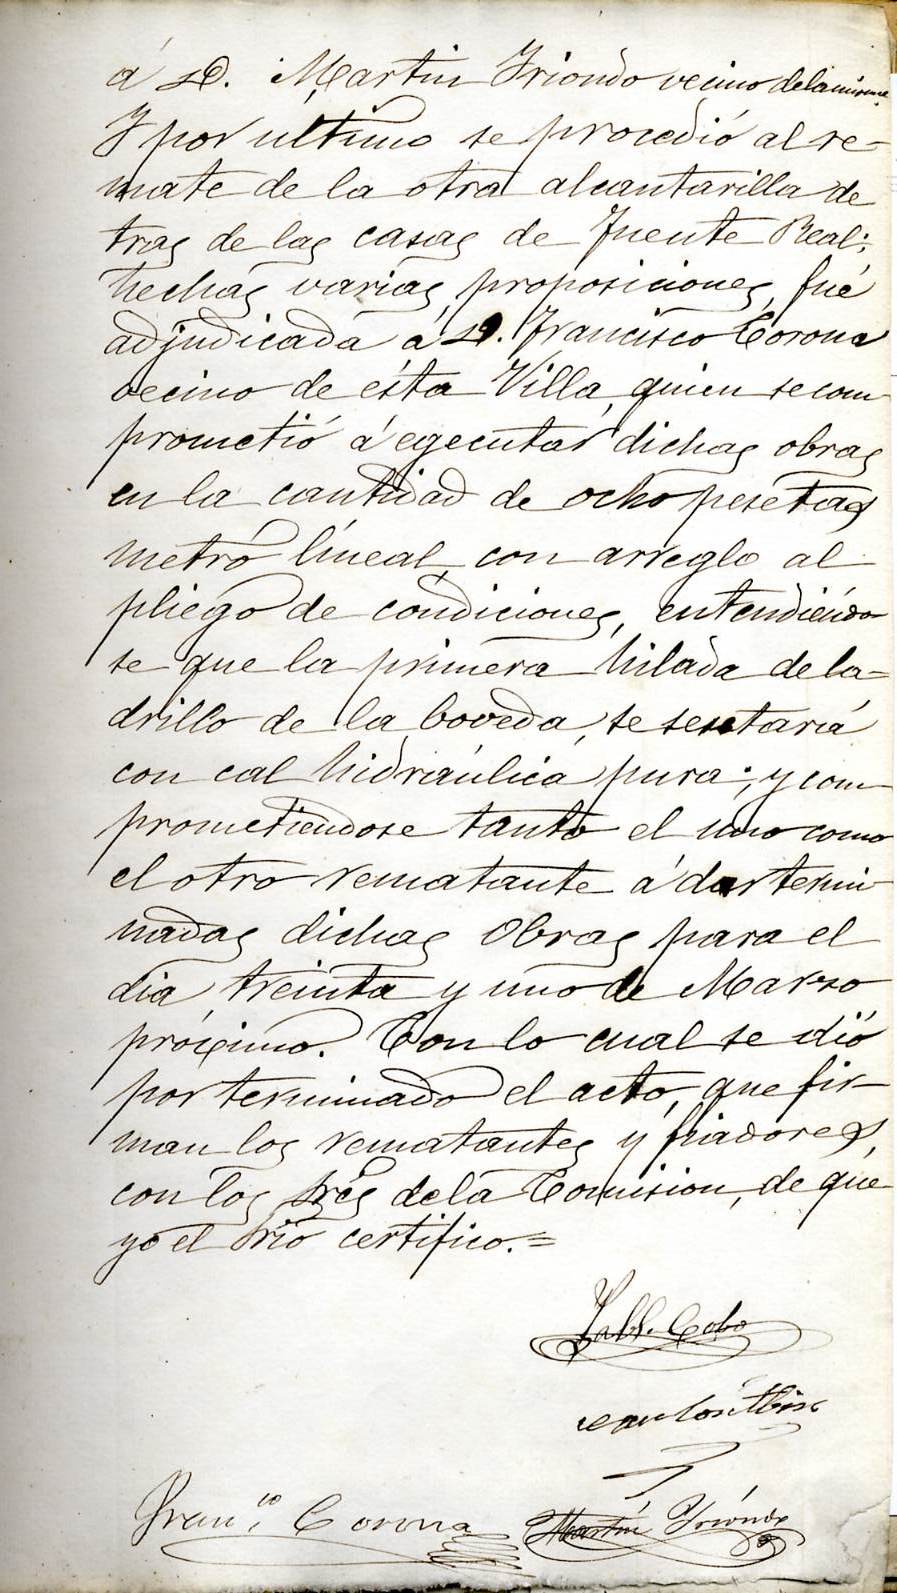 á D. Martin Yriondo vecino de la misma.
Y por ultimo se procedió al re-
mate de la otra alcantarilla de
tras de las casas de Fuente Real;
hechas varias proposiciones, fué
adjudicada á D. Francisco Corona
vecino de ésta Villa, quien se com-
prometió á egecutar dichas obras
en la cantidad de ocho pesetas
metro líneal, con arreglo al
pliego de condiciones, entendiéndo
se que la primera hilada de la-
drillo de la boveda, se sentaria
con cal hidráulica pura; y com-
prometiendose tanto el uno como
el otro rematante á dar termi-
nadas dichas obras para el
dia treinta y uno de Marzo
próximo. Con lo cual se dió
por terminado el acto, que fir-
man los rematantes y fiadores,
con los Sres de la Comision, de que
yo el Srio certifico.=
Pabl. Cobo
Franco. Corona Martin Yriondo